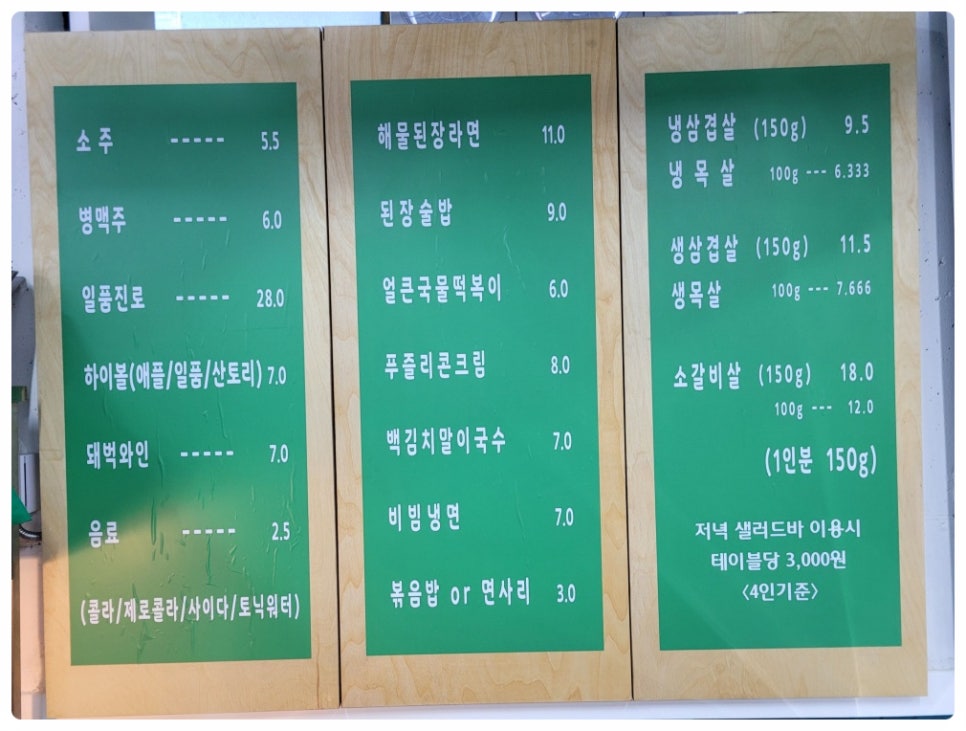 소주 ----- 5.5
병맥주 ----- 6.0
일품진로 ----- 28.0
하이볼(애플/일품/산토리) 7.0
돼벅와인 ----- 7.0
음료 ----- 2.5
(콜라/제로콜라/사이다/토닉워터)
해물된장라면 11.0
된장술밥 9.0
얼큰국물떡볶이 6.0
푸즐리콘크림 8.0
백김치말이국수 7.0
비빔냉면 7.0
볶음밥 or 면사리 3.0
냉삼겹살 (150g) 9.5
냉목살 100g --- 6.333
생삼겹살 (150g) 11.5
생목살 100g --- 7.666
소갈비살 (150g) 18.0
100g --- 12.0
(1인분 150g)
저녁 샐러드바 이용시
테이블당 3,000원
〈4인기준〉